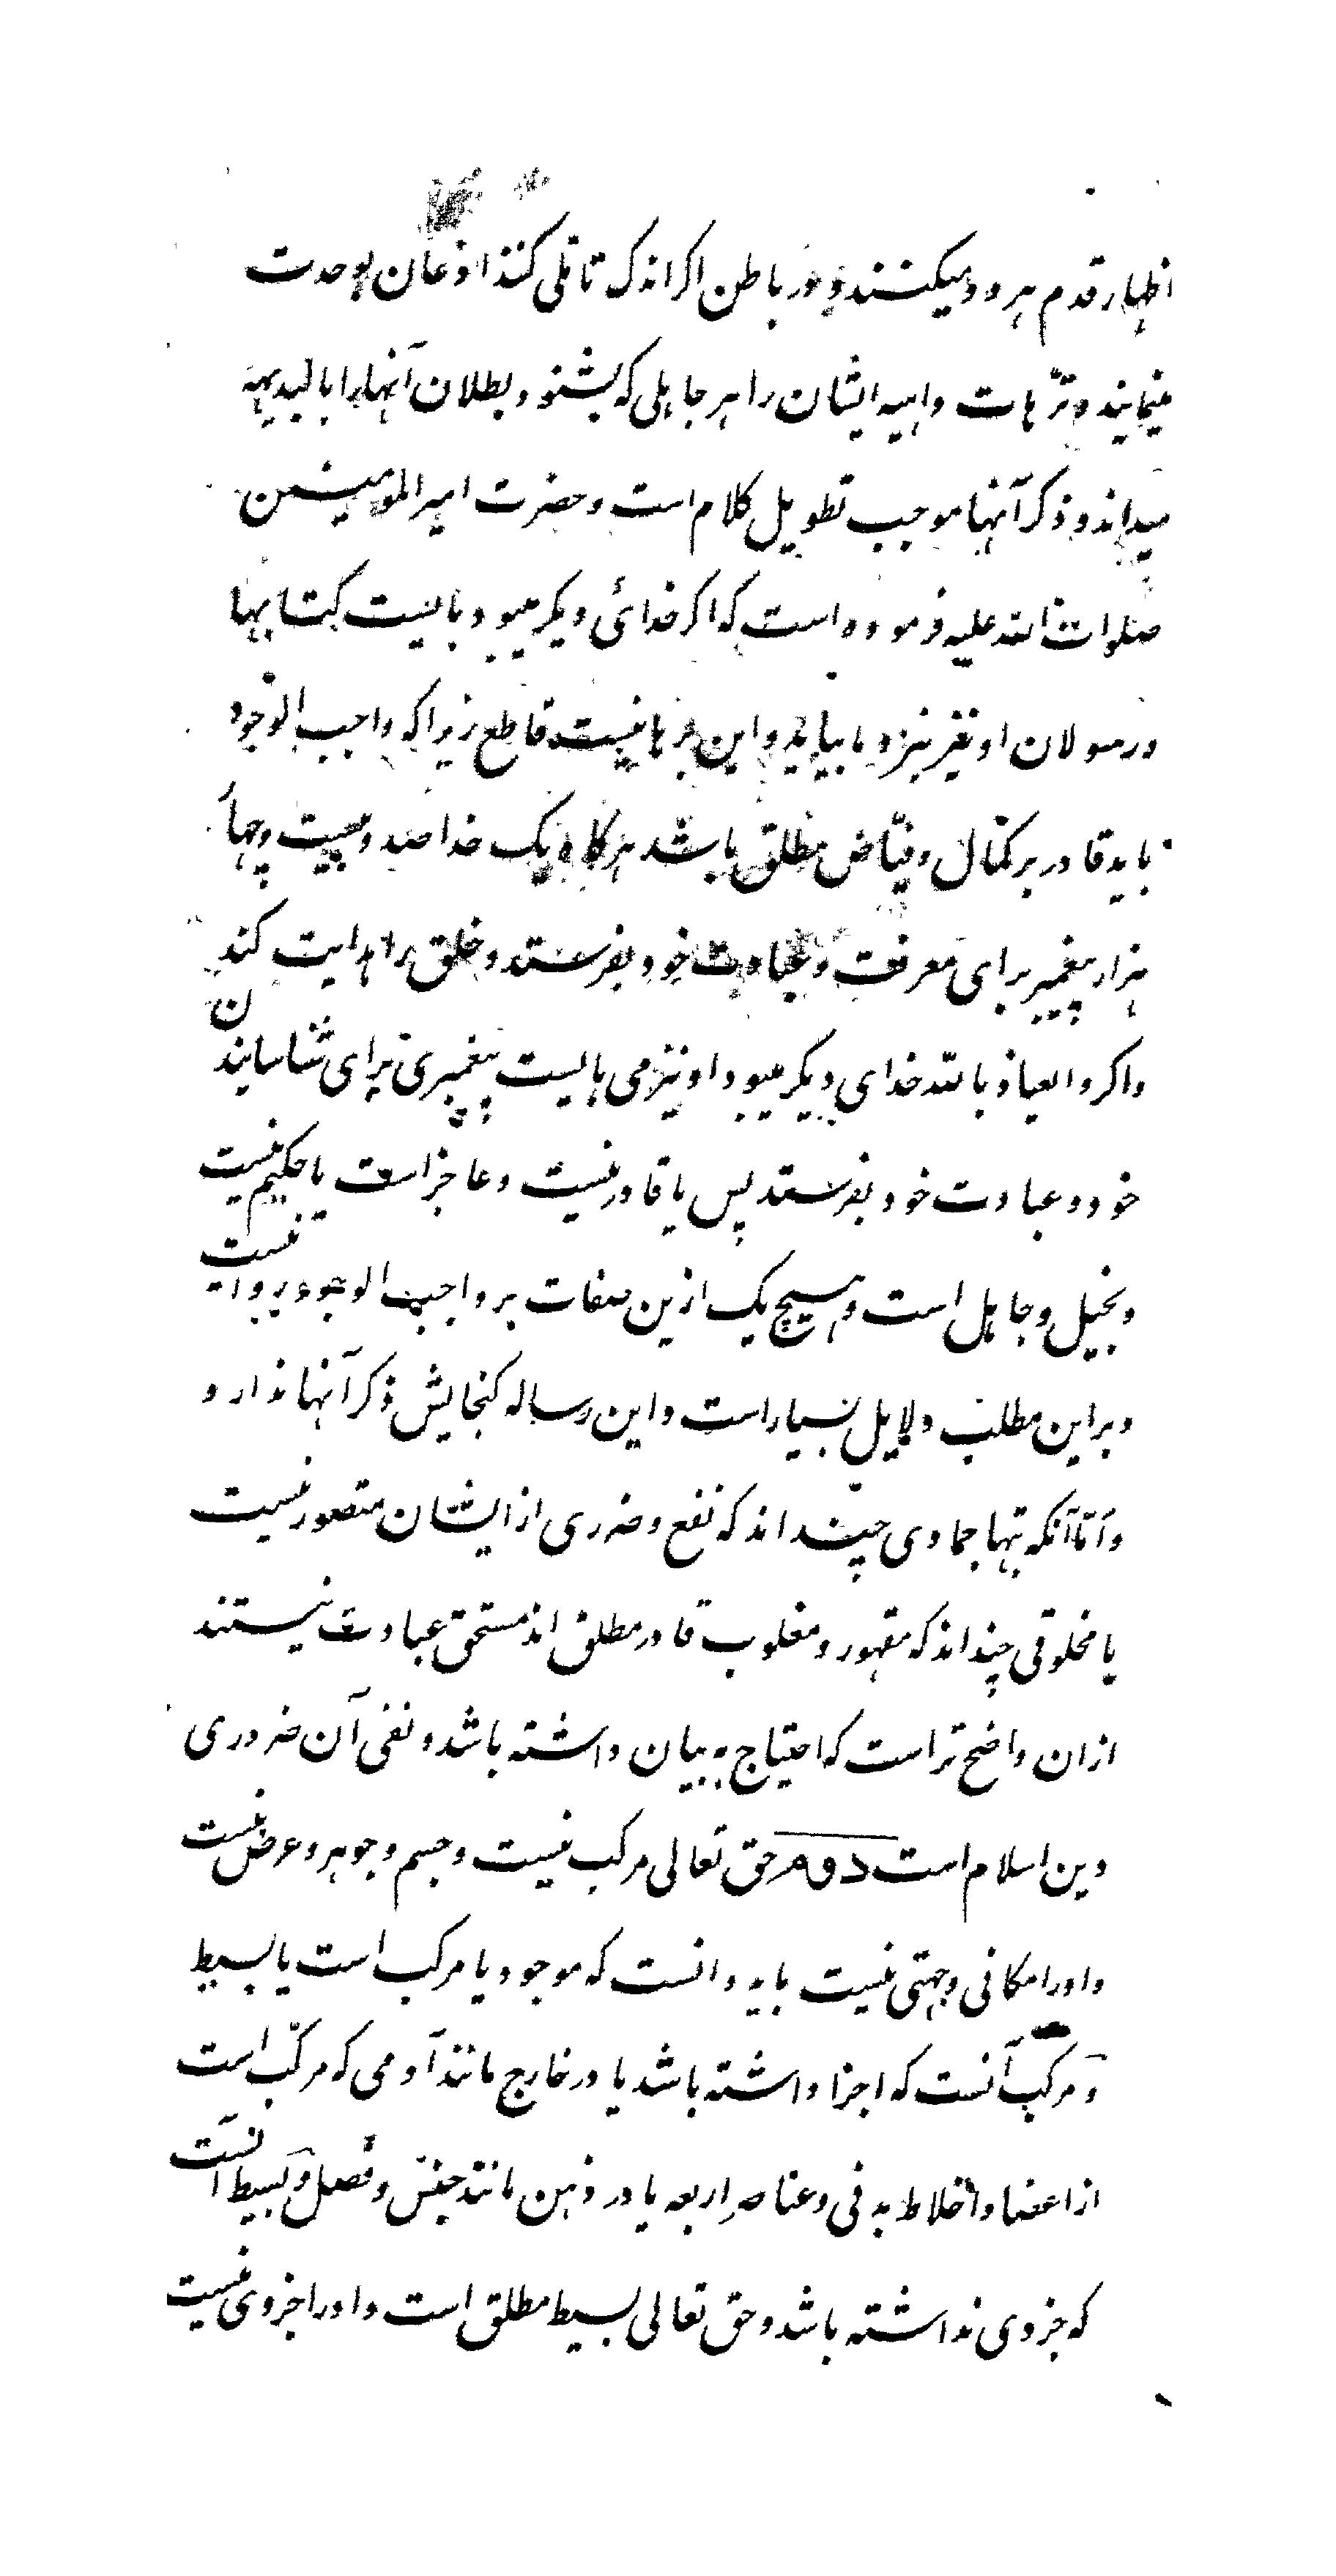 اظهار قدم هر دو میکنند و در باطن اکر اندک تاملی کنند اذعان بوحدت
مینمایند و ترّهات واهیه ایشان را هر جاهلی که بشنود بطلان آنها را بالبدیهه
میداند و ذکر آنها موجب تطویل کلام است و حضرت امیرالمومنین
صلوات الله علیه فرموده است که اکر خدائی دیکر میبود بایست کتابها
و رسولان او نیز نزد ما بیاید و این برهانیست قاطع زیرا که واجب الوجود
باید قادر بر کمال و فیّاض مطلق باشد هرکاه یک خدا صد و بیست و چهار
هزار پیغمبر برای معرفت و عبادت خود بفرستد و خلق را هدایت کند
و اکر و العیاذ بالله خدای دیکر میبود او نیز می بایست پیغمبری برای شناسانیدن
خود و عبادت خود بفرستد پس یا قادر نیست و عاجز است یا حکیم نیست
و بخیل و جاهل است و هیچ یک ازین صفات بر واجب الوجود روا نیست
و براین مطلب دلایل بسیار است و این رساله کنجایش ذکر آنها ندارد
و امّا آنکه بتها جمادی چند اند که نفع و ضرری از ایشان متصور نیست
یا مخلوقی چند اند که مقهور و مغلوب قادر مطلق اند مستحق عبادت نیستند
ازان واضح تر است که احتیاج به بیان داشته باشد و نفی آن ضروری
دین اسلام است دوم حق تعالی مرکب نیست و جسم و جوهر و عرض نیست
و اورا مکانی و جهتی نیست باید دانست که موجود یا مرکب است یا بسیط
و مرکب آنست که اجزا داشته باشد یا در خارج مانند آدمی که مرکّب است
از اعضا و اخلاط بدنی و عناصر اربعه یا در ذهن مانند جنس و فصل و بسیط آنست
که جزوی نداشته باشد و حق تعالی بسیط مطلق است و اورا جزوی نیست